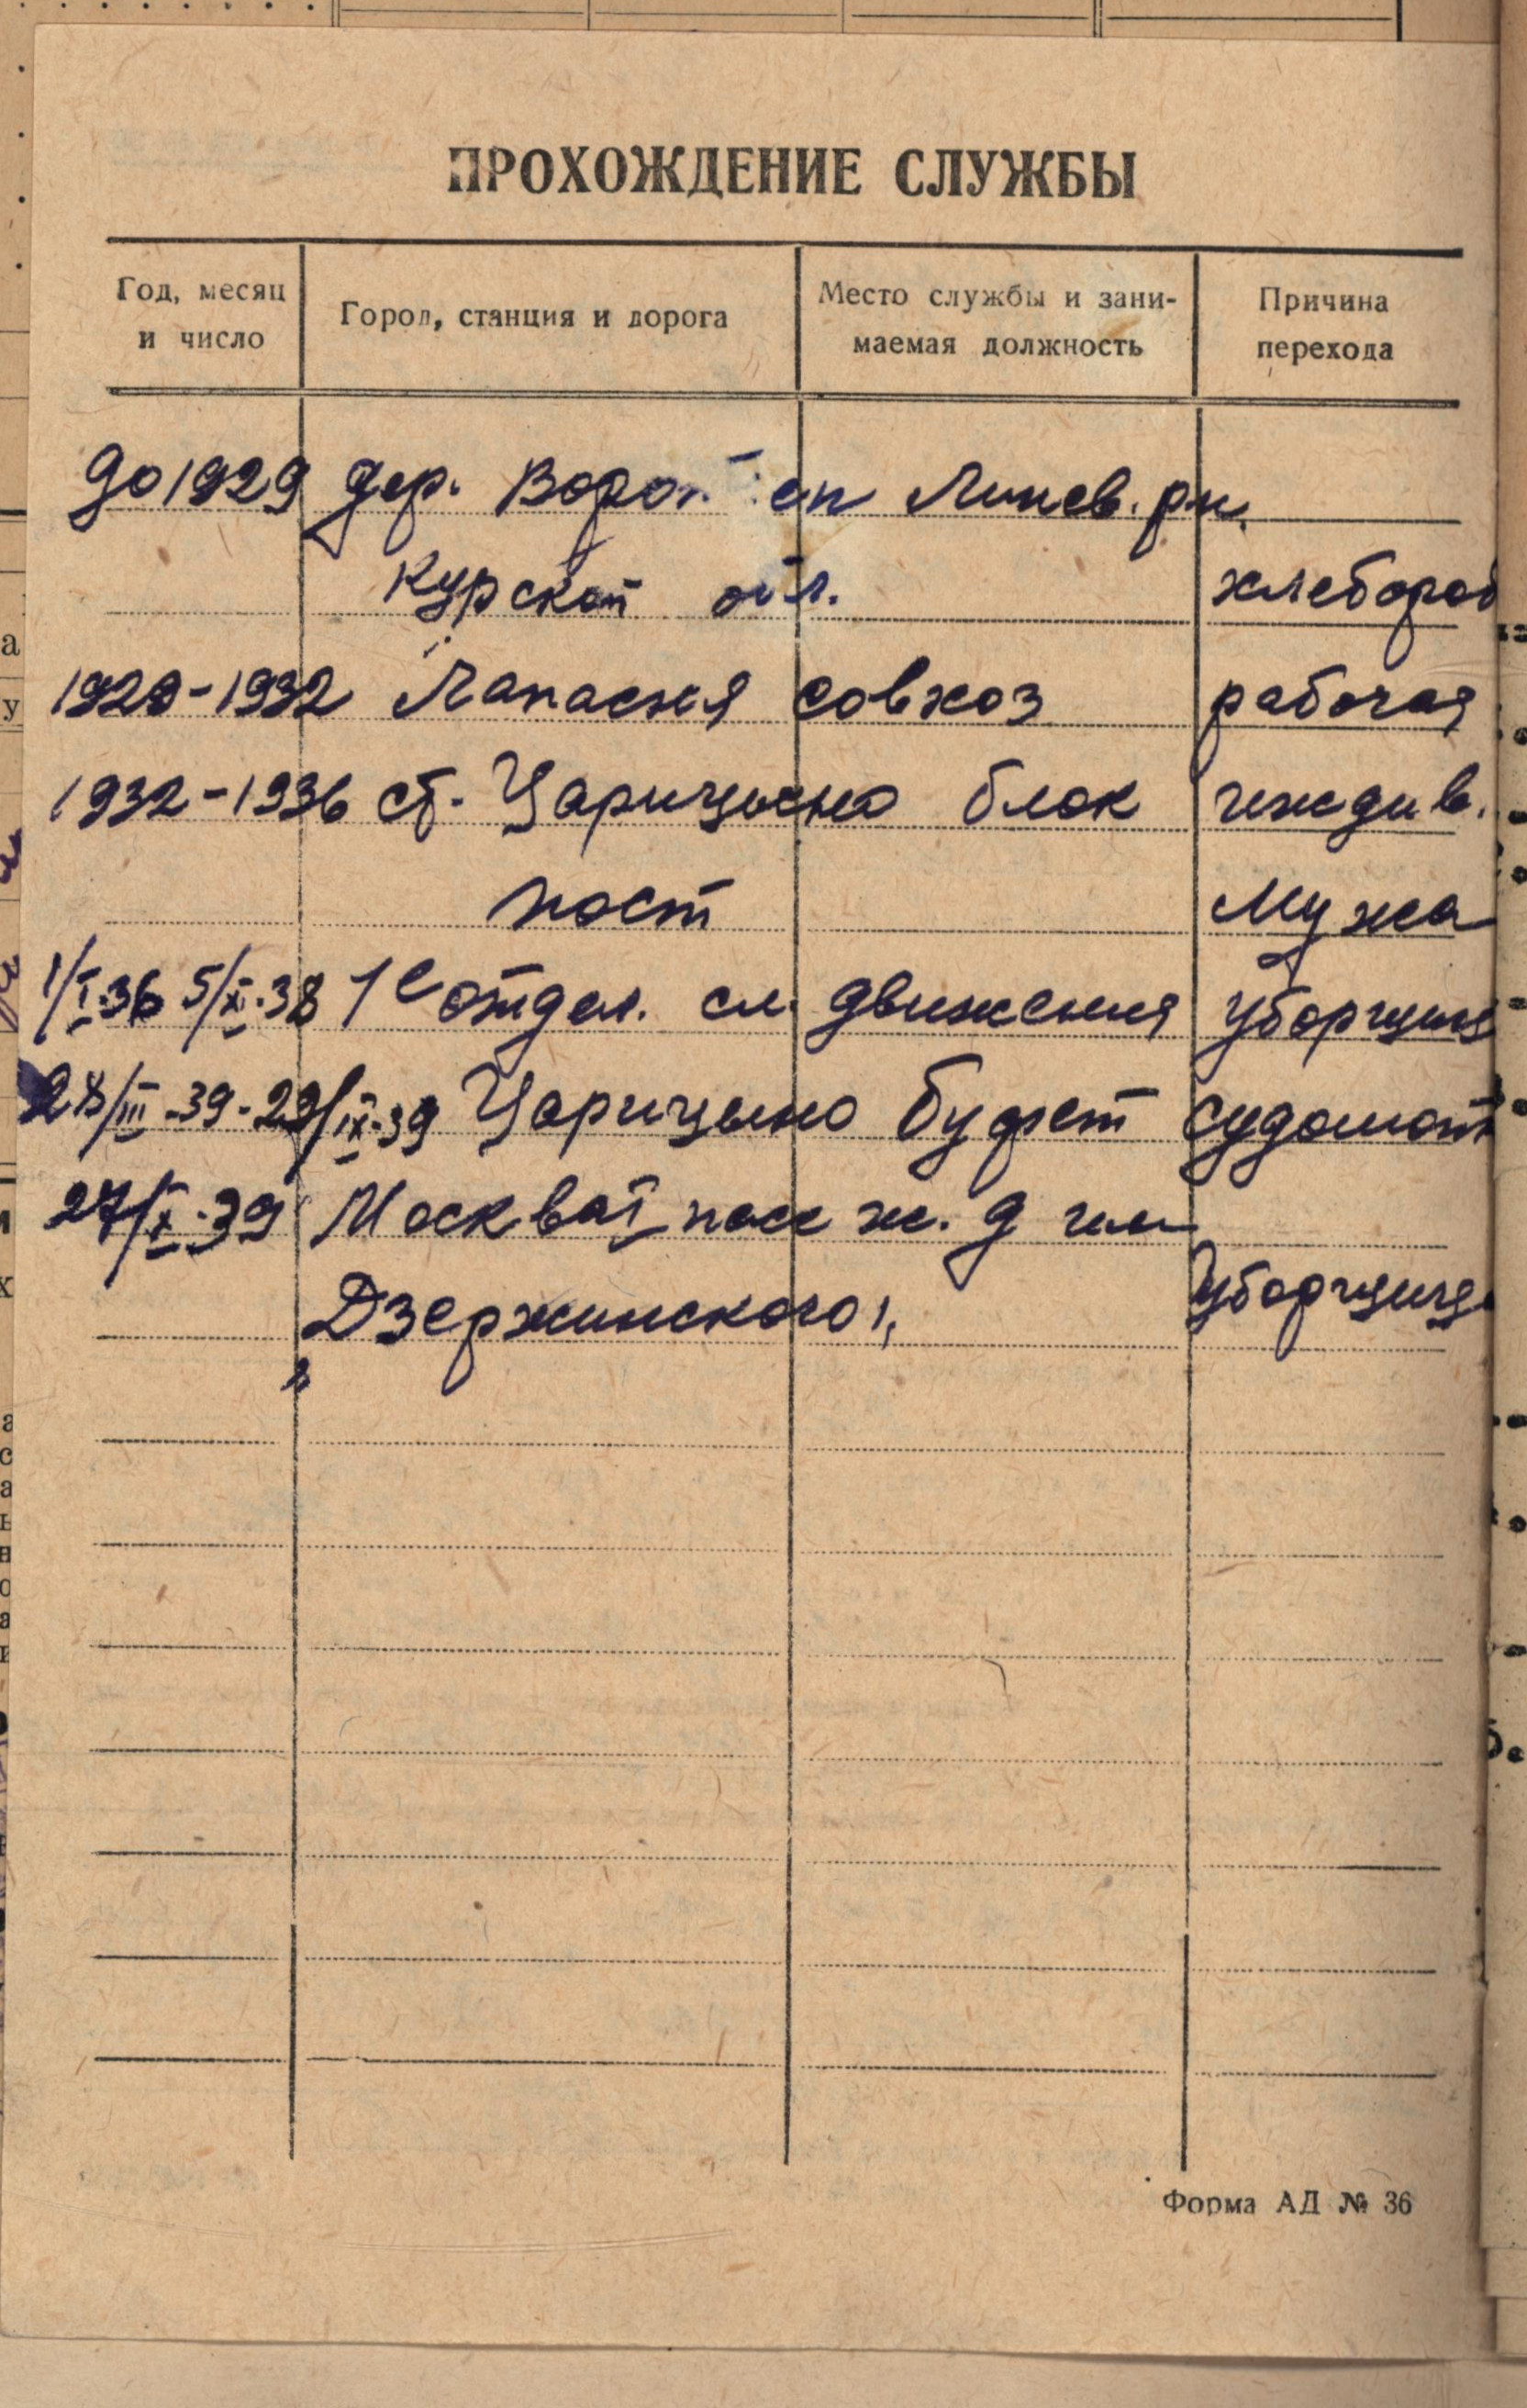 ПРОХОЖДЕНИЕ СЛУЖБЫ
Год, месяц и число
Город, станция и дорога
Место службы и занимаемая должность
Причина перехода
до 1929 дер. Линев. рн.
Курской обл. хлебороб
1929-1932 Лапасня совхоз рабочая
1932-1936 ст. Царицыно блок иждив.
пост мужа
1/I-36 5/XI-38 1е отдел. сл. движения уборщица
28/III-39-29/IX-39 Царицыно буфет судомойк
27/X-39 Москва I пасс ж. д им
Дзержинского уборщица
Форма АД № 36